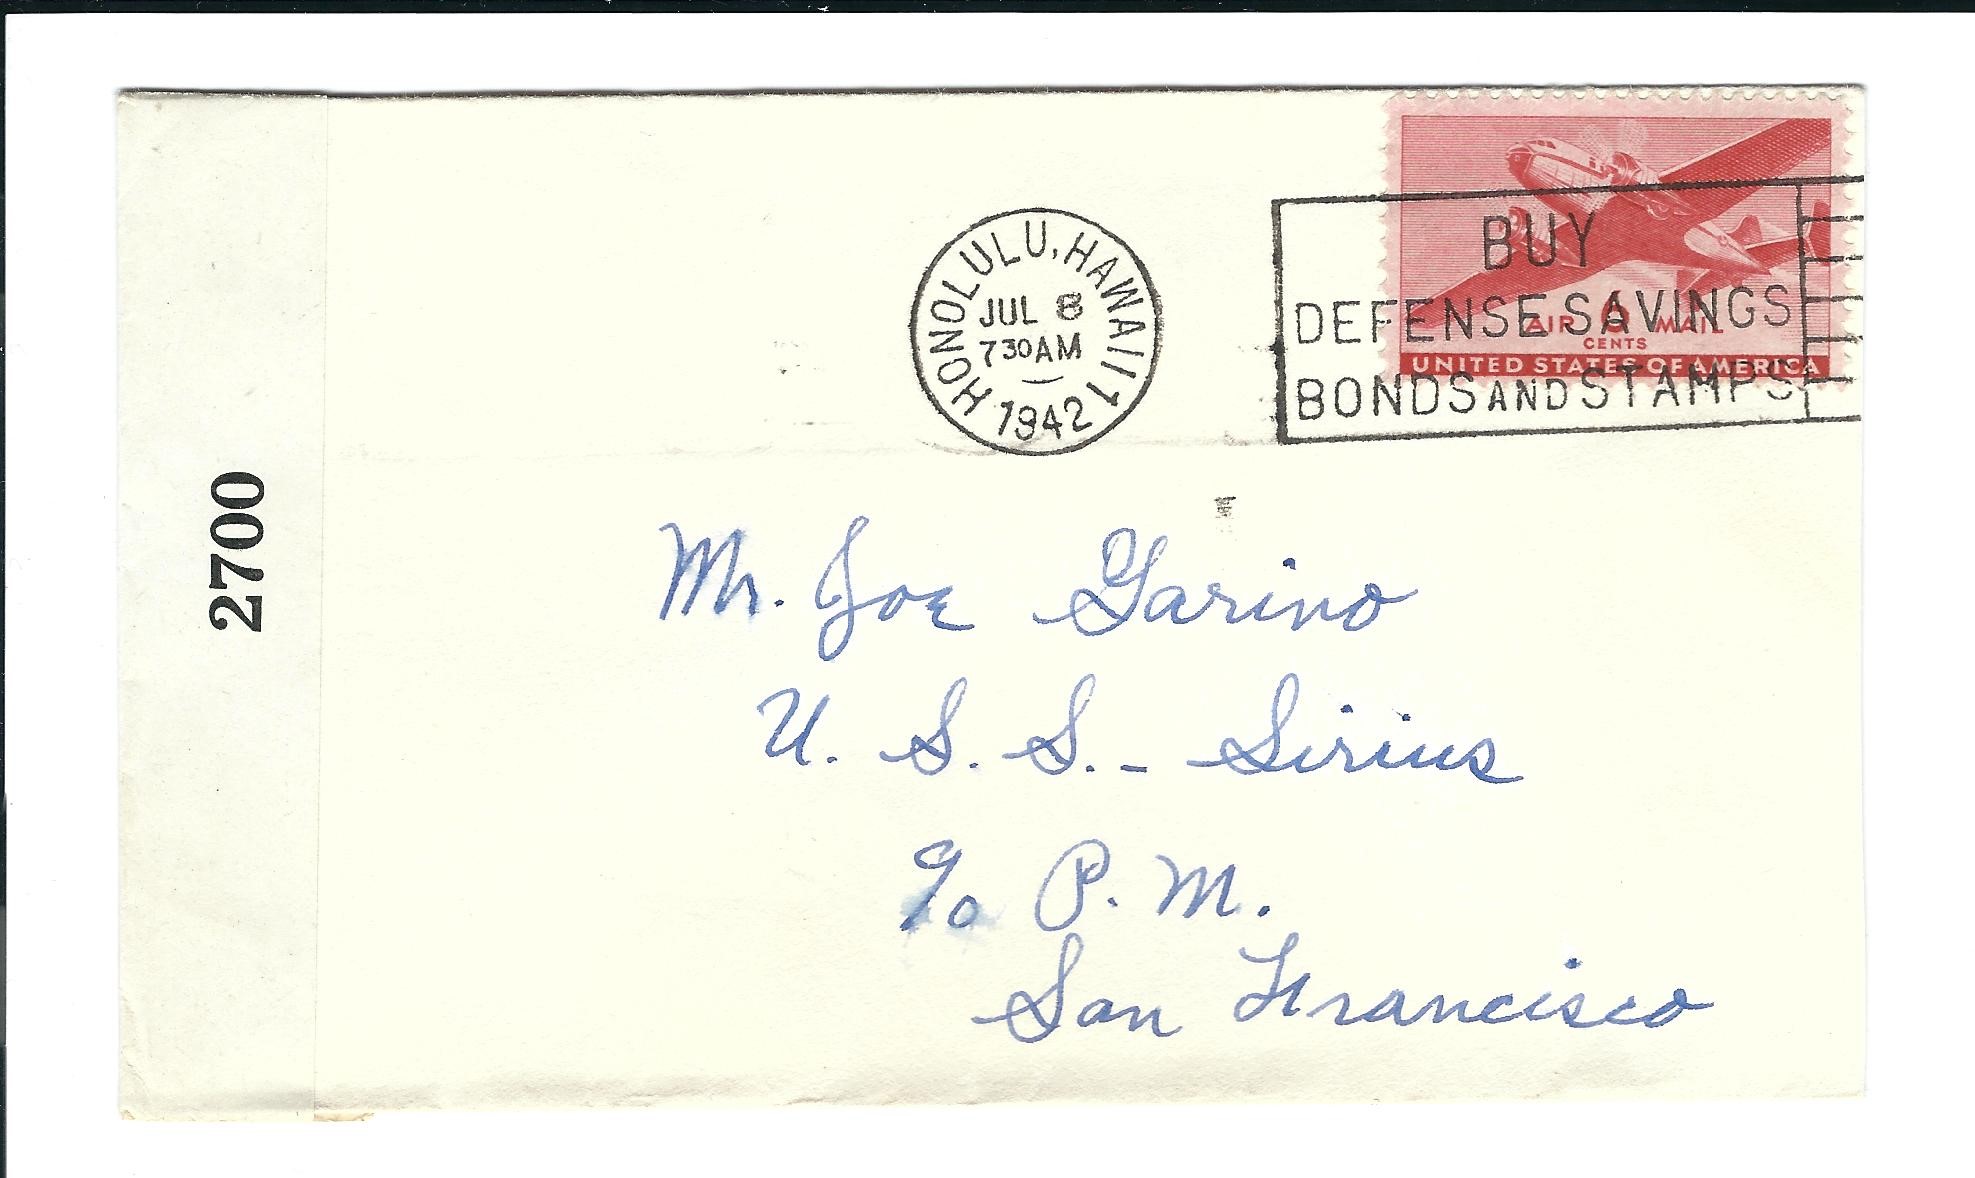 2700
HONOLULU, HAWAII 1
JUL 8
7 30 AM
1942
BUY
DEFENSE SAVINGS
BONDS AND STAMPS
AIR 6 MAIL
CENTS
UNITED STATES OF AMERICA
Mr. Joe Garino
U. S. S. - Sirius
c/o P. M.
San Francisco